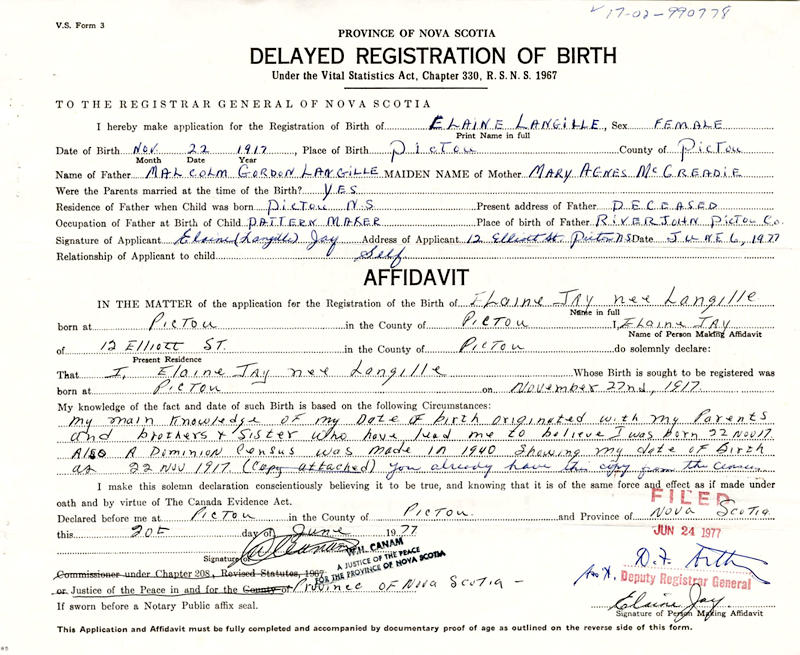 V.S. Form 3
17-02-990778
PROVINCE OF NOVA SCOTIA
DELAYED REGISTRATION OF BIRTH
Under the Vital Statistics Act, Chapter 330, R.S.N.S. 1967
TO THE REGISTRAR GENERAL OF NOVA SCOTIA
I hereby make application for the Registration of Birth of ELAINE LANGILLE, Sex FEMALE
Print Name in full
Date of Birth NOV. 22 1917, Place of Birth PICTOU County of PICTOU
Month Date Year
Name of Father MALCOLM GORDON LANGILLE MAIDEN NAME of Mother MARY AGNES MCCREADIE
Were the Parents married at the time of the Birth? YES
Residence of Father when Child was born PICTOU N.S Present address of Father DECEASED
Occupation of Father at Birth of Child PATTERN MAKER Place of birth of Father RIVER JOHN PICTOU Co.
Signature of Applicant Elaine (Langille) Jay Address of Applicant 12 Elliott St. Pictou NS Date JUNE 6, 1977
Relationship of Applicant to child Self
AFFIDAVIT
IN THE MATTER of the application for the Registration of the Birth of ELAINE JAY nee Langille
Name in full
born at PICTOU in the County of PICTOU I, ELAINE JAY
Name of Person Making Affidavit
of 12 Elliott ST. in the County of PICTOU do solemnly declare:
Present Residence
That I, Elaine JAY nee Langille Whose Birth is sought to be registered was
born at PICTOU on November 22nd, 1917.
My knowledge of the fact and date of such Birth is based on the following Circumstances:
My main knowledge of my Date of birth originated with my Parents
and brothers & Sister who have lead me to believe I was born 22 Nov 17.
Also A Dominion Census was made in 1940 showing my date of Birth
as 22 Nov 1917 (copy attached) you already have this copy from the Census.
I make this solemn declaration conscientiously believing it to be true, and knowing that it is of the same force and effect as if made under
oath and by virtue of The Canada Evidence Act.
FILED
Declared before me at PICTOU in the County of PICTOU. and Province of NOVA SCOTIA
this 20th day of June 1977
JUN 24 1977
Signature of
W.H. CANAM
A JUSTICE OF THE PEACE
FOR THE PROVINCE OF NOVA SCOTIA
Commissioner under Chapter 208, Revised Statutes, 1967
Deputy Registrar General
or Justice of the Peace in and for the County of PROVINCE OF NOVA SCOTIA -
If sworn before a Notary Public affix seal.
Elaine Jay
Signature of Person Making Affidavit
This Application and Affidavit must be fully completed and accompanied by documentary proof of age as outlined on the reverse side of this form.